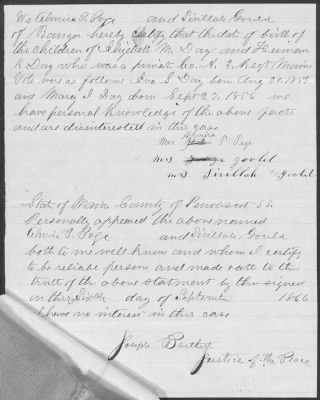 We Almira P. Page and Sirillah Gould
of Bangor hereby certify that the date of birth of
the children of Elizabeth M. Day and Freeman
K Day who was a private Co. K. 2 Regt Maine
Vols was as follows Eva S Day born Aug 30. 1853
and Mary I Day born Sept 23, 1856 we
have personal knowledge of the above facts
and are disinterested in this case
Almira
Mrs P. Page
Mrs goold
Mrs Sirillah Goold
State of Maine County of Penobscot S S.
Personally appeared the above named
Almira P. Page and Sirillah Gould
both to me well know and whom I certify
to be reliable persons and made oath to the
truth of the above statement by them signed
in this Sixth day of September 1866
I have no interest in this case
Joseph Bartlett
Justice of the Peace